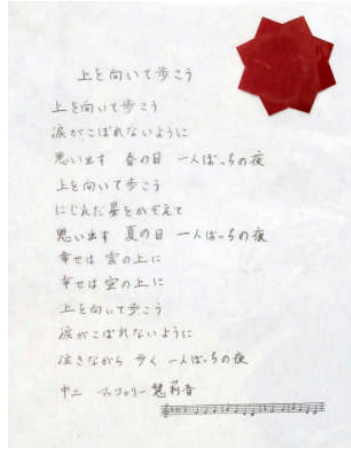 上を向いて歩こう
上を向いて歩こう
涙がこぼれないように
思い出す 春の日 一人ぼっちの夜
上を向いて歩こう
にじんだ星をかぞえて
思い出す 夏の日 一人ぼっちの夜
幸せは 雲の上に
幸せは 空の上に
上を向いて歩こう
涙がこぼれないように
泣きながら 歩く 一人ぼっちの夜
中二